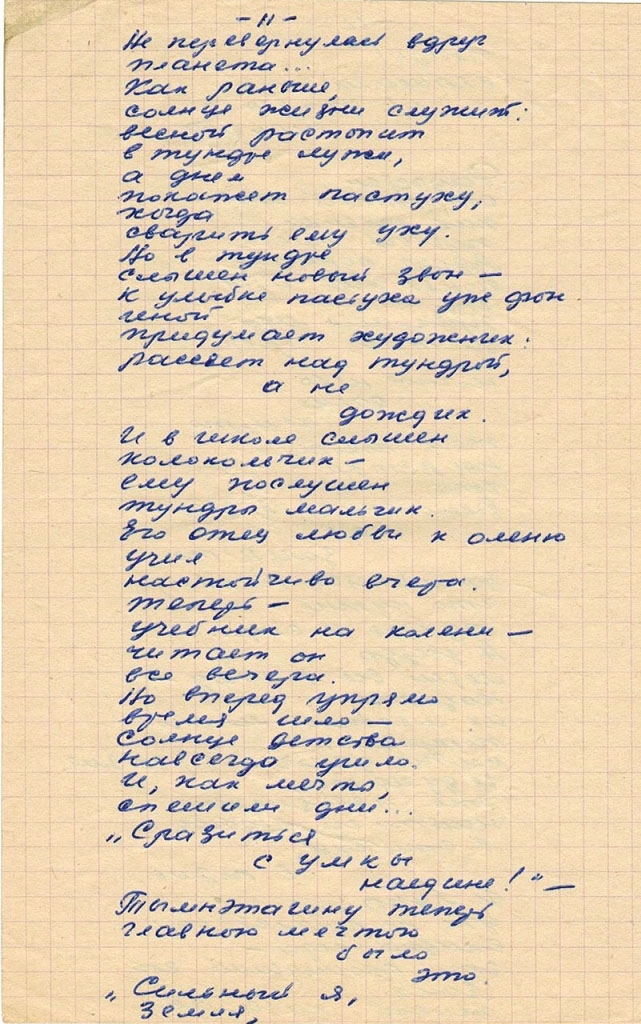 - 11 -
Не перевернулась вдруг
планета...
Как раньше,
солнце жизни служит:
весной растопит
в тундре лужи,
а днем
покажет пастуху,
когда
сварить ему уху.
Но в тундре
слышен новый звон —
к улыбке пастуха уже фон
иной
придумает художник:
рассвет над тундрой,
а не
дождик.
И в школе слышен
колокольчик —
ему послушен
тундры мальчик.
Его отец любви к оленю
учил
настойчиво вчера.
Теперь —
учебник на колени —
читает он
все вечера.
Но вперед упрямо
время шло —
солнце детства
навсегда ушло.
И, как мечта,
спешили дни...
„Сразиться
с умкы
наедине!" —
Тымнэтагину теперь
главною мечтою
было
это.
„Сильный я,
Земля,